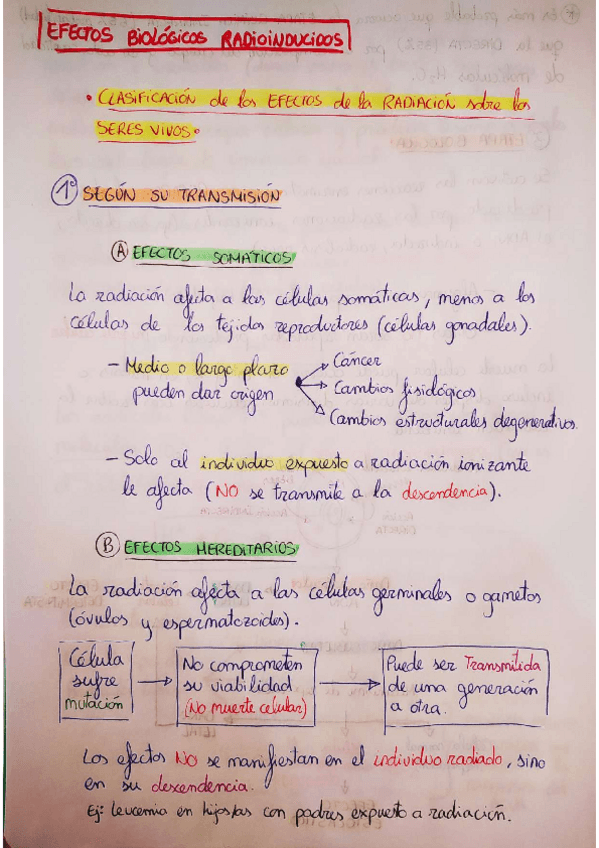 EFECTOS BIOLÓGICOS RADIOINDUCIDOS
• CLASIFICACIÓN de los EFECTOS de la RADIACIÓN sobre los
SERES VIVOS.
1º SEGÚN SU TRANSMISIÓN
A EFECTOS SOMÁTICOS
La radiación afecta a las células somáticas, menos a los
células de los tejidos reproductores (células gonadales).
- Medio o largo plazo
pueden dar origen
Cáncer
Cambios fisiológicos
Cambios estructurales degenerativos.
- Solo al individuo expuesto a radiación ionizante
le afecta (NO se transmite a la descendencia).
B EFECTOS HEREDITARIOS
La radiación afecta a las células germinales o gametos
(óvulos y espermatozoides).
Célula
sufre
mutación
No comprometen
su viabilidad
(No muerte celular)
Puede ser Transmitida
de una generación
a otra.
Los efectos NO se manifiestan en el individuo radiado, sino
en su descendencia.
Ej: leucemia en hijos/as con padres expuesto a radiación.